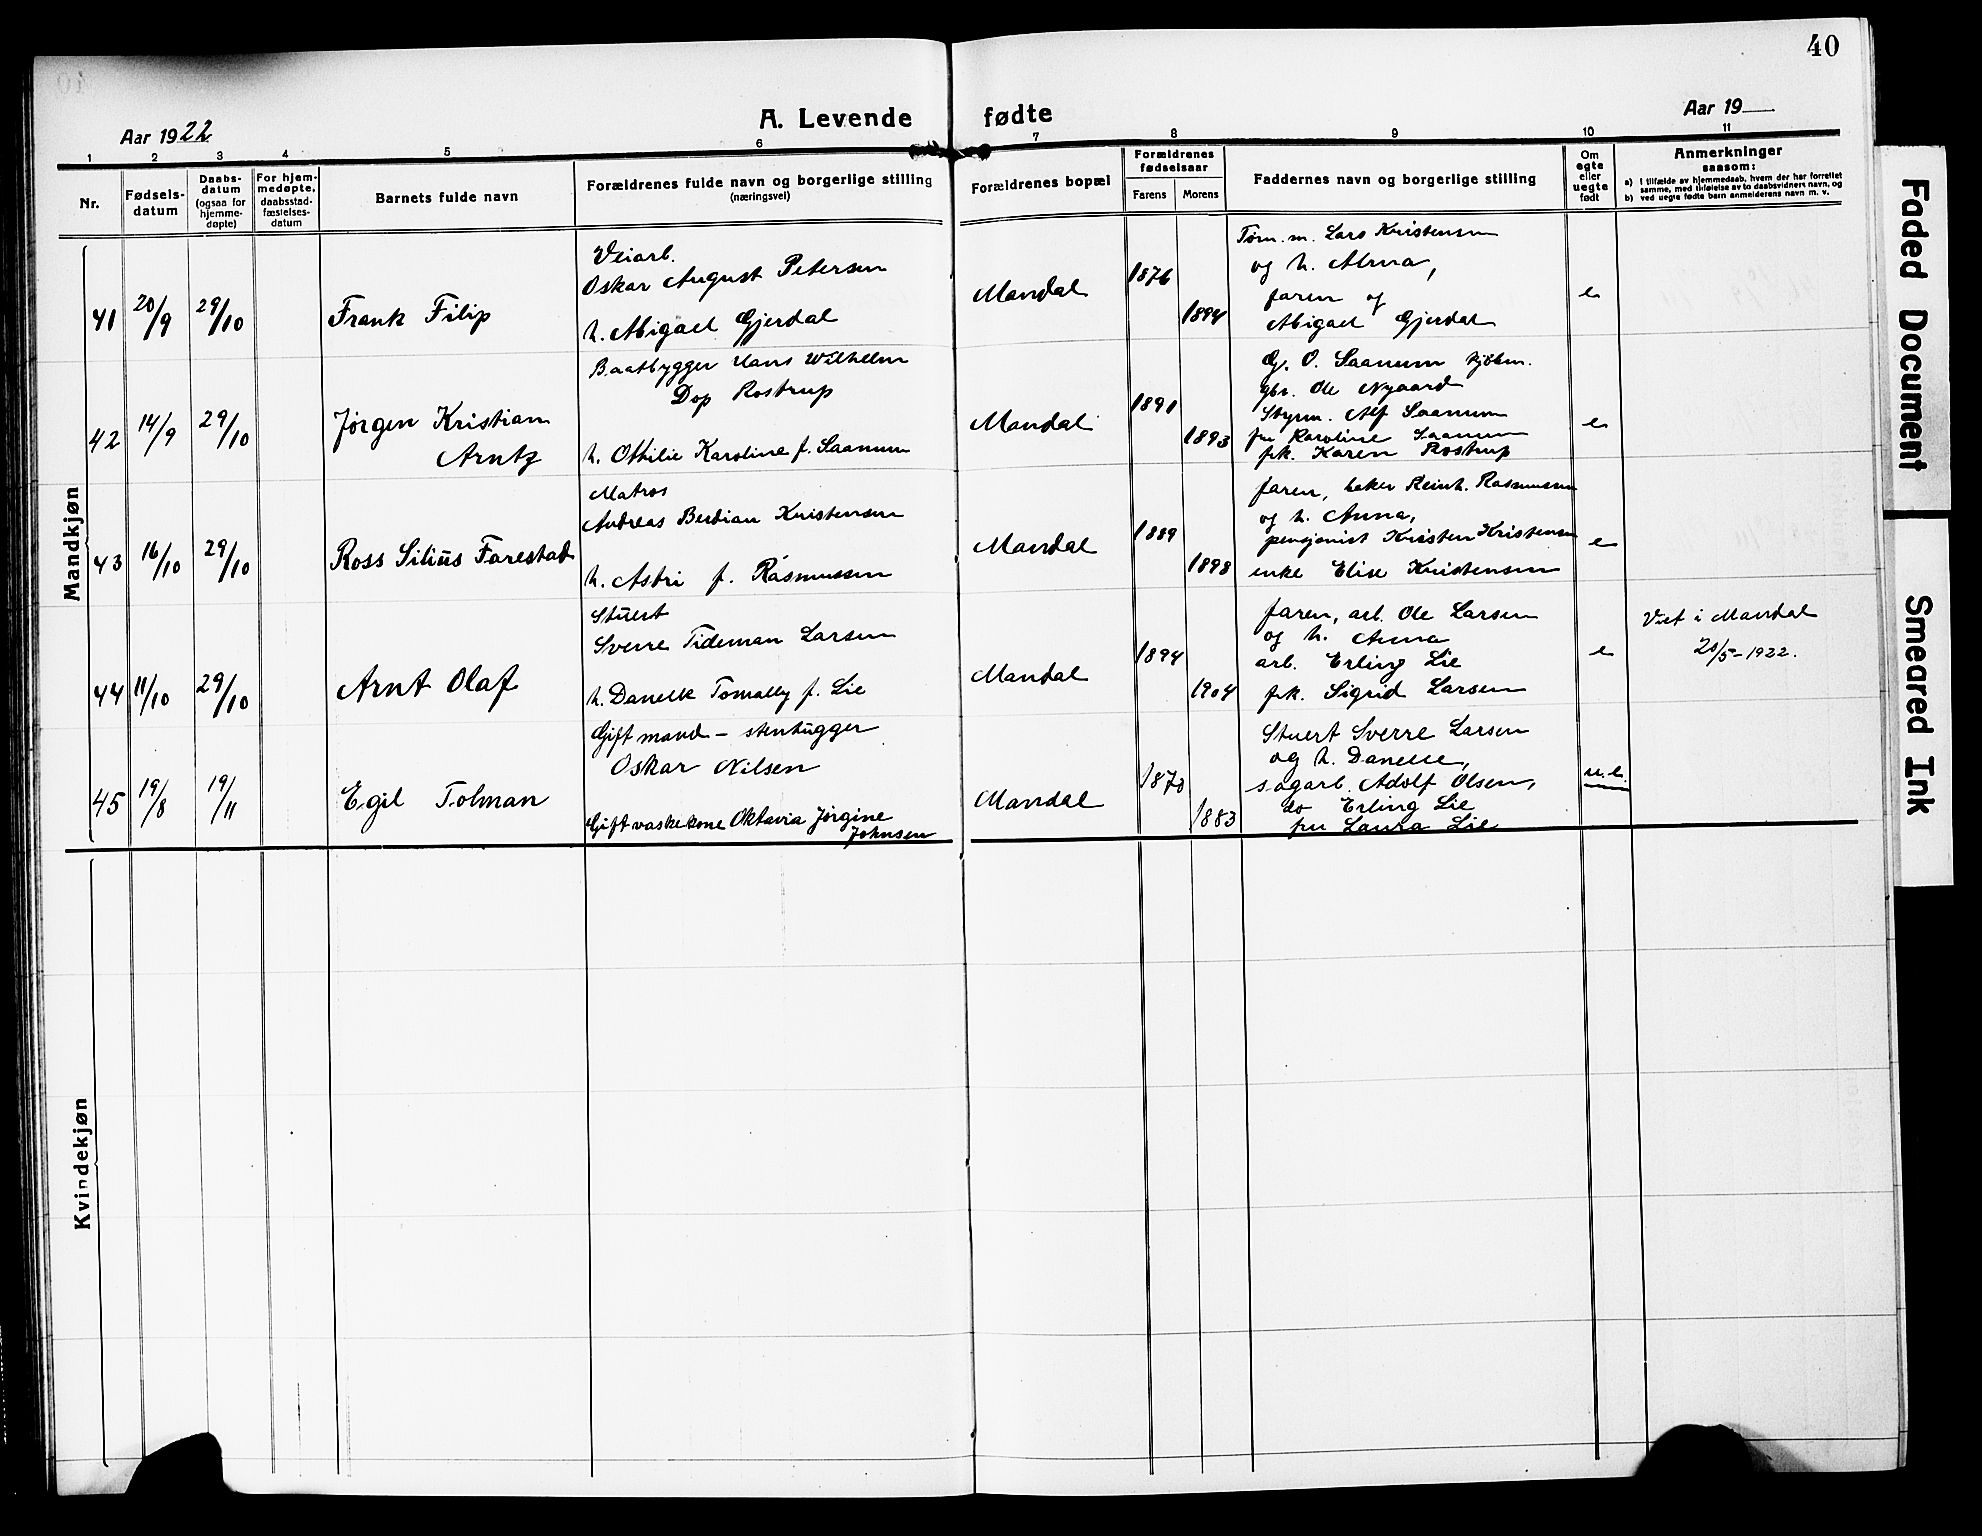 40
A. Levende fødte
Aar 1922
Aar 19
1 2 3 4 5 6 7 8 9 10 11
Nr.
Fødsels-
datum
Daabs-
datum
(ogsaa for
hjemme-
døpte)
For hjem-
medøpte,
daabsstad-
fæstelses-
datum
Barnets fulde navn
Forældrenes fulde navn og borgerlige stilling
(næringsvei)
Forældrenes bopæl
Forældrenes
fødselsaar
Farens Morens
Faddernes navn og borgerlige stilling
Om
egte
eller
uegte
født
Anmerkninger
saasom:
a) I tilfælde av hjemmedaab, hvem der har forrettet
samme, med tilføielse av to daabsvidners navn, og
b) ved uegte fødte barn anmelderens navn m. v.
Mandkjøn
41 20/9 29/10
Frank Filip
Veiarb.
Oskar August Petersen
h. Abigael Gjerdal
Mandal
1876
1894
Tøm. m. Lars Kristensen
og h. Alma,
faren og
Abigael Gjerdal
e
42 14/9 29/10
Jørgen Kristian
Arntz
Baatbygger Hans Wilhelm
Dop Rostrup
h. Othilie Karoline f. Saanum
Mandal
1891
1893
G. O. Saanum kjøbm.
gbr. Ole Nygaard
Styrm. Alf Saanum
fru Karoline Saanum
frk. Karen Rostrup
e
43 16/10 29/10
Ross Silius Farestad
Matros
Andreas Berdian Kristensen
h. Astri f. Rasmussen
Mandal
1889
1898
faren, baker Reinh. Rasmussen
og h. Anna,
pensjonist Kristen Kristensen
enke Elise Kristensen
e
44 11/10 29/10
Arnt Olaf
Stuert
Sverre Tideman Larsen
h. Danelle Tomally f. Lie
Mandal
1894
1904
faren, arb. Ole Larsen
og h. Anna
arb. Erling Lie
frk. Sigrid Larsen
e
Viet i Mandal
20/5-1922.
45 19/8 19/11
Egil Tolman
Gift mand - stenhugger
Oskar Nilsen
Gift vaskekone Oktavia Jørgine
Johnsen
Mandal
1870
1883
Stuert Sverre Larsen
og h. Danelle,
sagarb. Adolf Olsen,
do Erling Lie
fru Laura Lie
u.e.
Kvindekjøn
Faded Document
Smeared Ink